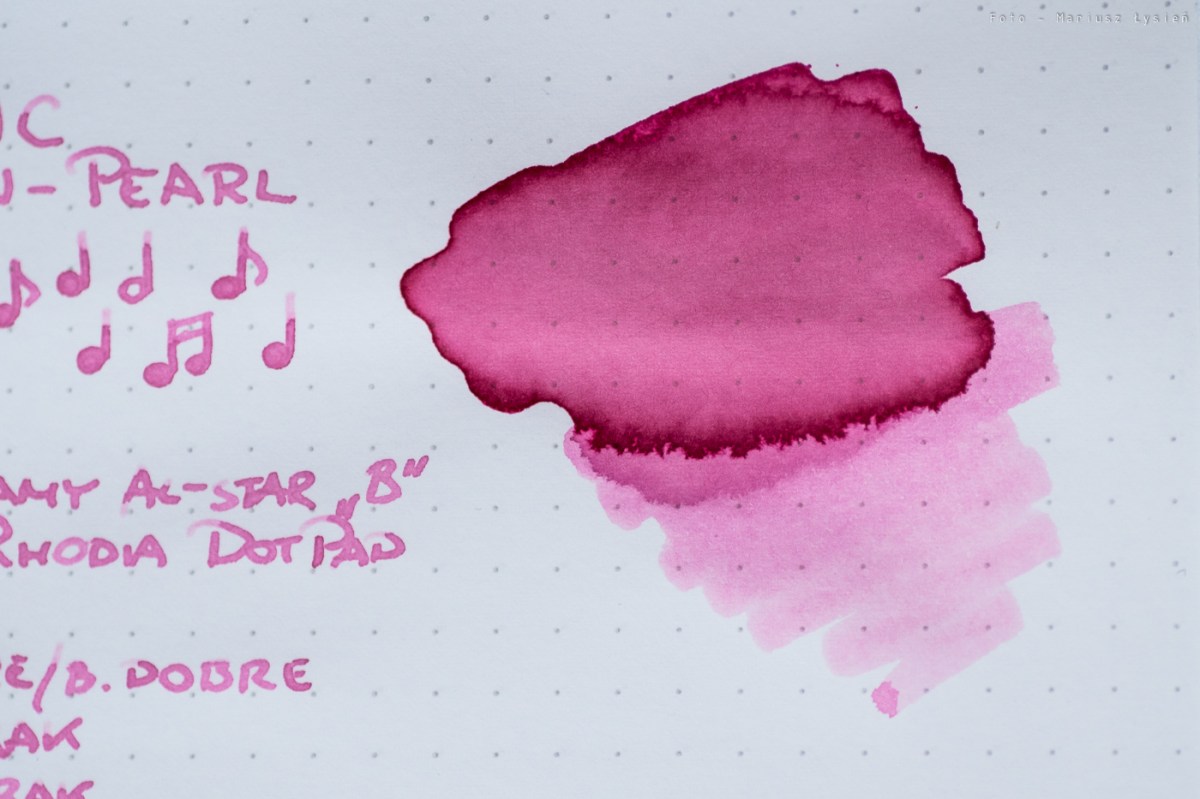 Foto - Mariusz Łysień
C
- PEARL
AMY AL-STAR „B"
RHODIA DOTPAD
E/B. DOBRE
AK
RAK